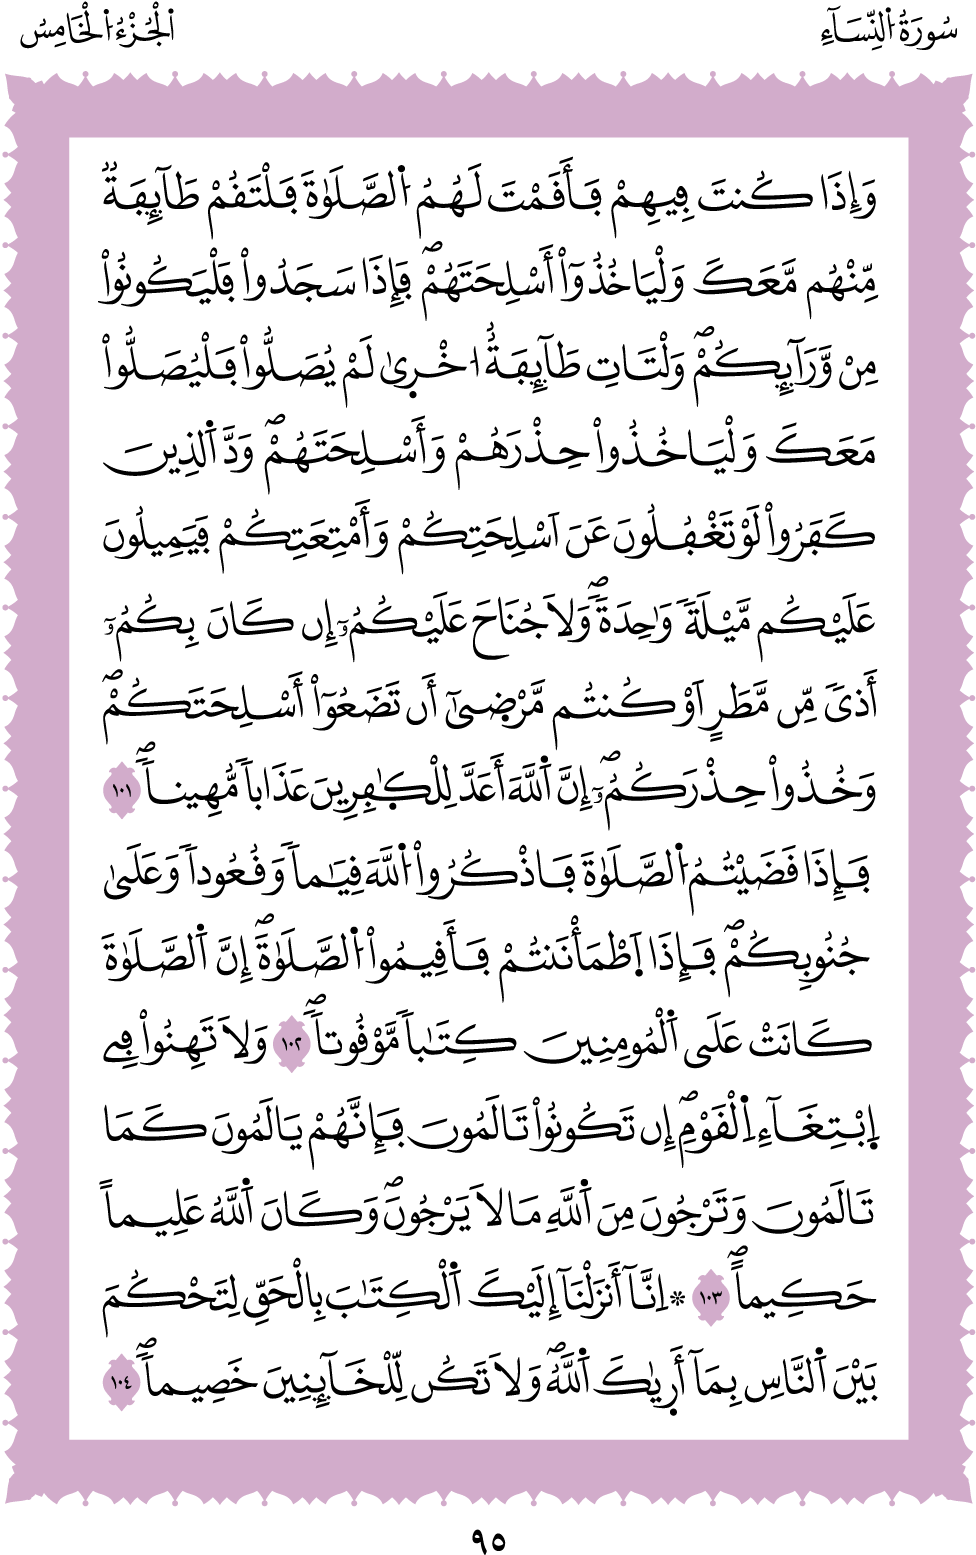 سُورَةُ اُ۬لنِّسَآءِ
اَ۬لْجُزْءُ اُ۬لْخَامِسُ
وَإِذَا كُنتَ فِيهِمْ فَأَقَمْتَ لَهُمُ اُ۬لصَّلَوٰةَ فَلْتَقُمْ طَآئِفَةٞ
مِّنْهُم مَّعَكَ وَلْيَاخُذُوٓاْ أَسْلِحَتَهُمْۖ فَإِذَا سَجَدُواْ فَلْيَكُونُواْ
مِنْ وَّرَآئِكُمْۖ وَلْتَاتِ طَآئِفَةٌ ا۟خْر۪يٰ لَمْ يُصَلُّواْ فَلْيُصَلُّواْ
مَعَكَ وَلْيَاخُذُواْ حِذْرَهُمْ وَأَسْلِحَتَهُمْۖ وَدَّ اَ۬لذِينَ
كَفَرُواْ لَوْ تَغْفُلُونَ عَنَ اَسْلِحَتِكُمْ وَأَمْتِعَتِكُمْ فَيَمِيلُونَ
عَلَيْكُم مَّيْلَةٗ وَٰحِدَةٗۖ وَلَا جُنَاحَ عَلَيْكُمُۥٓ إِن كَانَ بِكُمُۥٓ
أَذيٗ مِّن مَّطَرٍ اَوْ كُنتُم مَّرْض۪يٰٓ أَن تَضَعُوٓاْ أَسْلِحَتَكُمْۖ
وَخُذُواْ حِذْرَكُمُۥٓۖ إِنَّ اَ۬للَّهَ أَعَدَّ لِلْكٰ۪فِرِينَ عَذَاباٗ مُّهِيناٗۖ ١٠١
فَإِذَا قَضَيْتُمُ اُ۬لصَّلَوٰةَ فَاذْكُرُواْ اُ۬للَّهَ قِيَٰماٗ وَقُعُوداٗ وَعَلَيٰ
جُنُوبِكُمْۖ فَإِذَا اَ۪طْمَأْنَنتُمْ فَأَقِيمُواْ اُ۬لصَّلَوٰةَۖ إِنَّ اَ۬لصَّلَوٰةَ
كَانَتْ عَلَي اَ۬لْمُومِنِينَ كِتَٰباٗ مَّوْقُوتاٗۖ ١٠٢ وَلَا تَهِنُواْ فِے
اِ۪بْتِغَآءِ اِ۬لْقَوْمِۖ إِن تَكُونُواْ تَالَمُونَ فَإِنَّهُمْ يَالَمُونَ كَمَا
تَالَمُونَ وَتَرْجُونَ مِنَ اَ۬للَّهِ مَا لَا يَرْجُونَۖ وَكَانَ اَ۬للَّهُ عَلِيماً
حَكِيماًۖ ١٠٣ ۞ اِنَّآ أَنزَلْنَآ إِلَيْكَ اَ۬لْكِتَٰبَ بِالْحَقِّ لِتَحْكُمَ
بَيْنَ اَ۬لنَّاسِ بِمَآ أَر۪يٰكَ اَ۬للَّهُۖ وَلَا تَكُن لِّلْخَآئِنِينَ خَصِيماٗۖ ١٠٤
٩٥